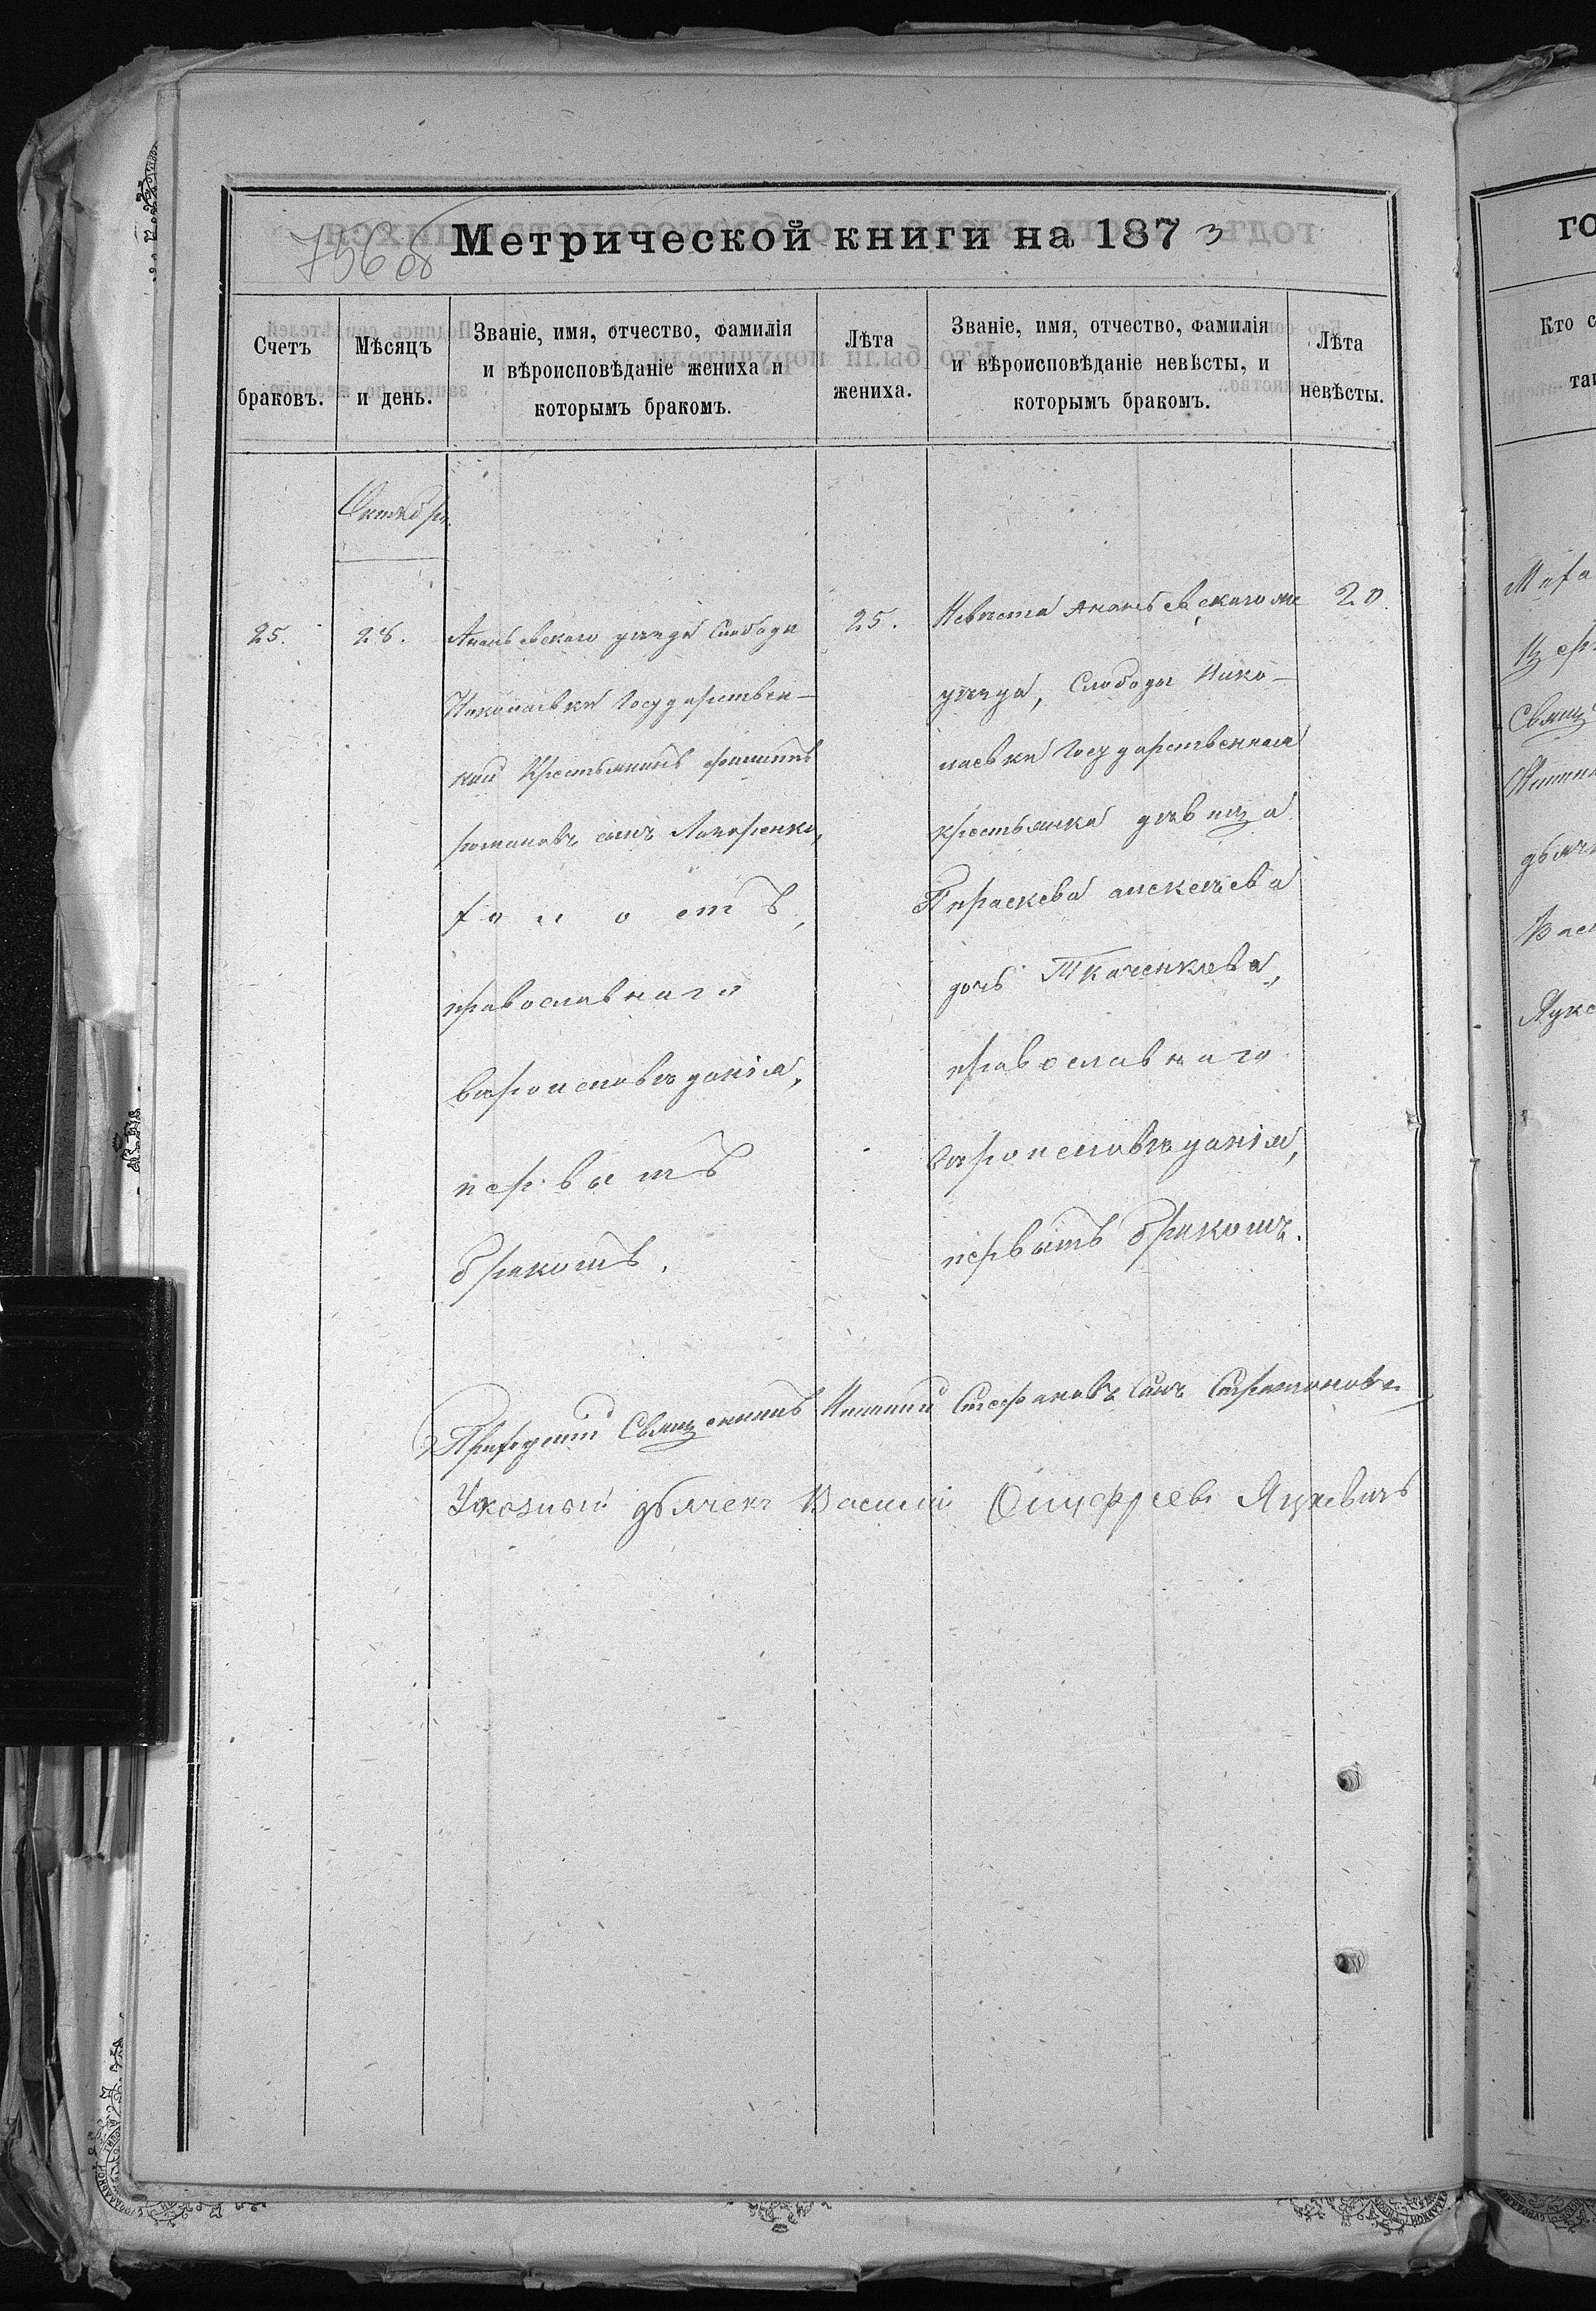 756 об
Метрической книги на 1873
Счетъ браковъ.
Мѣсяцъ и день.
Званіе, имя, отчество, фамилія и вѣроисповѣданіе жениха и которымъ бракомъ.
Лѣта жениха.
Званіе, имя, отчество, фамилія и вѣроисповѣданіе невѣсты, и которымъ бракомъ.
Лѣта невѣсты.
Октябрь.
25.
28.
Ананьевскаго уѣзда Слободы
Николаевки Государствен-
ный Крестьянинъ Филиппъ
Романовъ сынъ
холостъ,
православнаго
вѣроисповѣданія,
первымъ
бракомъ.
25.
Невѣста Ананьевскаго же
уѣзда, Слободы Нико-
лаевки Государственная
крестьянка дѣвица
Параскева Алексѣева
дочь Ткаченкова,
православнаго
вѣроисповѣданія,
первымъ бракомъ.
20.
Приходскій Священникъ Стефановъ сынъ
Указный дьячекъ Василій Онуфріевъ Яцкевичъ
го
Кто с
та
Свящ
дьяч
Вас